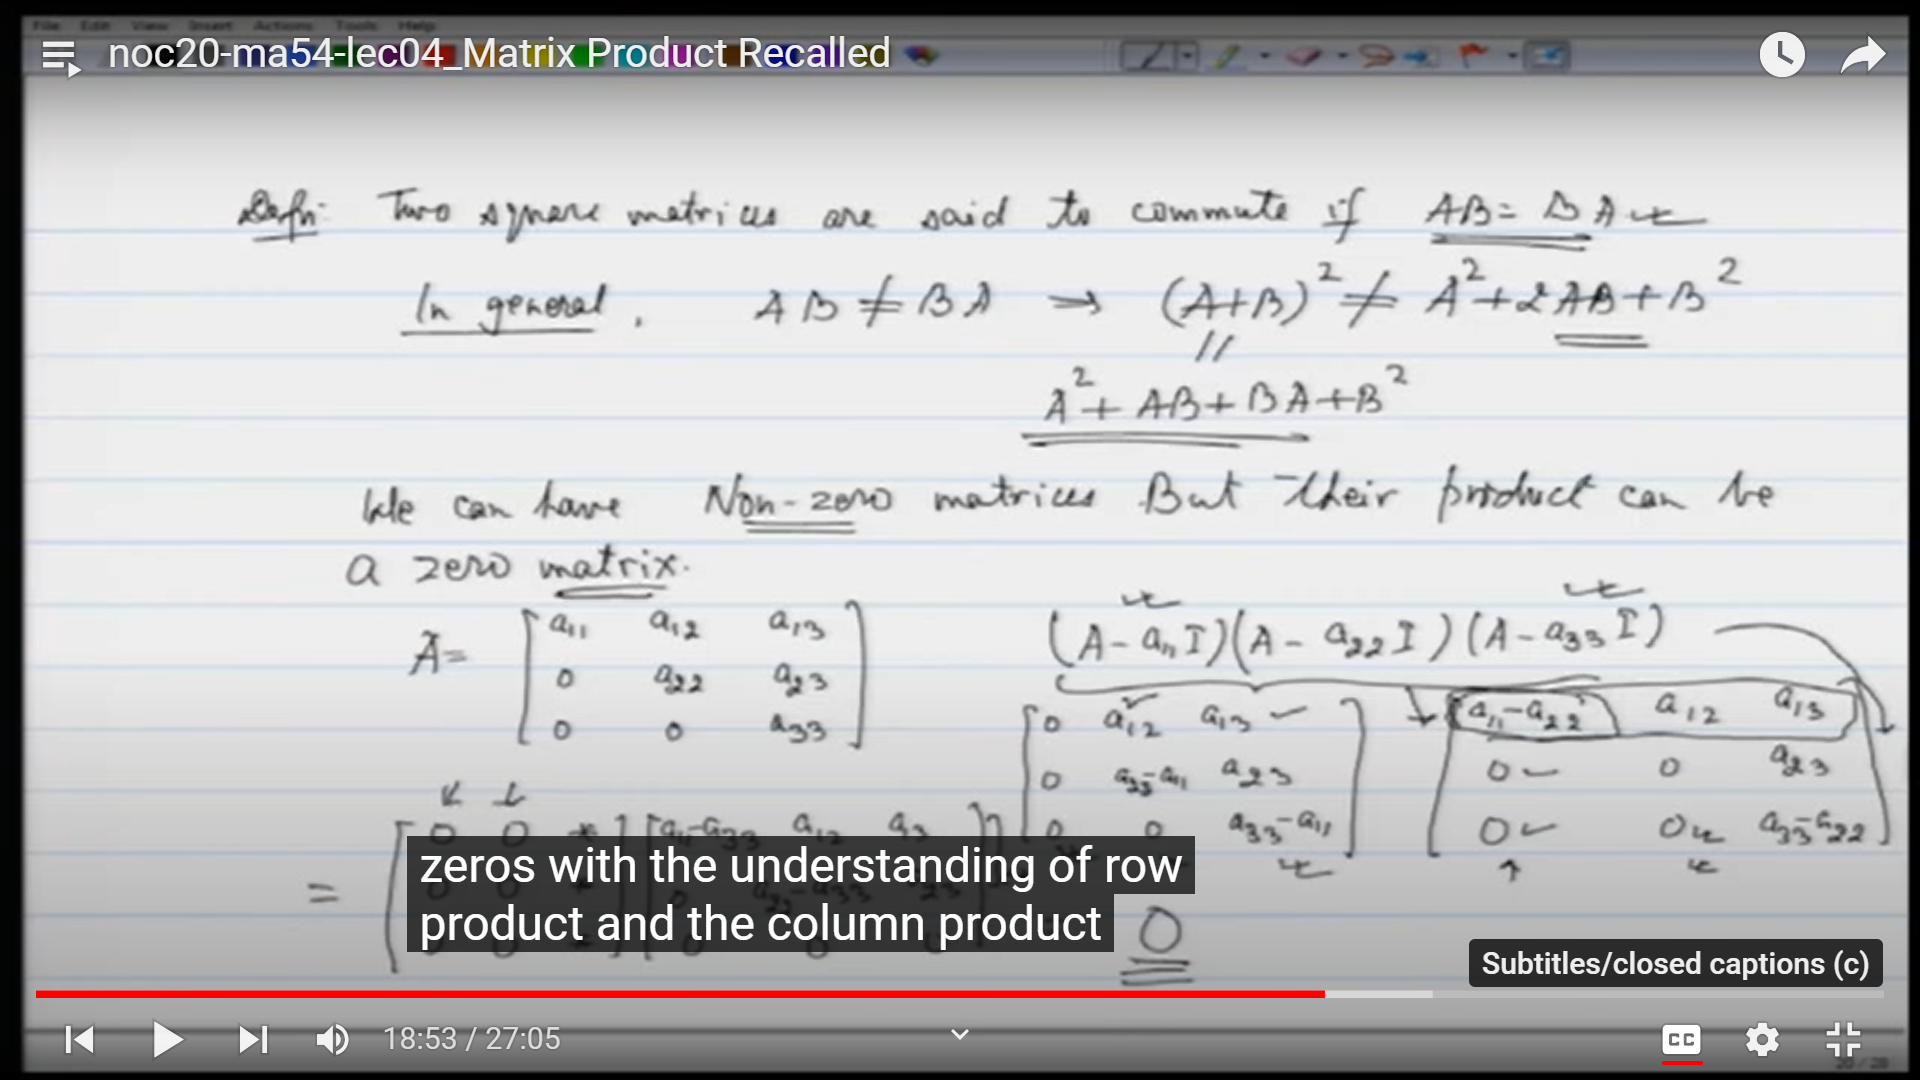 File Edit View Insert Actions Tools Help
noc20-ma54-lec04_Matrix Product Recalled
Defn: Two square matrices are said to commute if AB = BA
In general, AB ≠ BA → (A+B)² ≠ A² + 2AB + B²
//
A² + AB + BA + B²
We can have Non-zero matrices But their product can be
a zero matrix.
A = [ a11 a12 a13
0 a22 a23
0 0 a33 ]
(A - a11 I)(A - a22 I)(A - a33 I)
[ 0 a12 a13
0 a22-a11 a23
0 0 a33-a11 ]
[ a11-a22 a12 a13
0 0 a23
0 0 a33-a22 ]
= [ 0 0 *
0 0 *
0 0 * ]
[ a11-a33 a12 a13
0 a22-a33 a23
0 0 0 ]
0
zeros with the understanding of row
product and the column product
Subtitles/closed captions (c)
18:53 / 27:05
CC
20 / 28